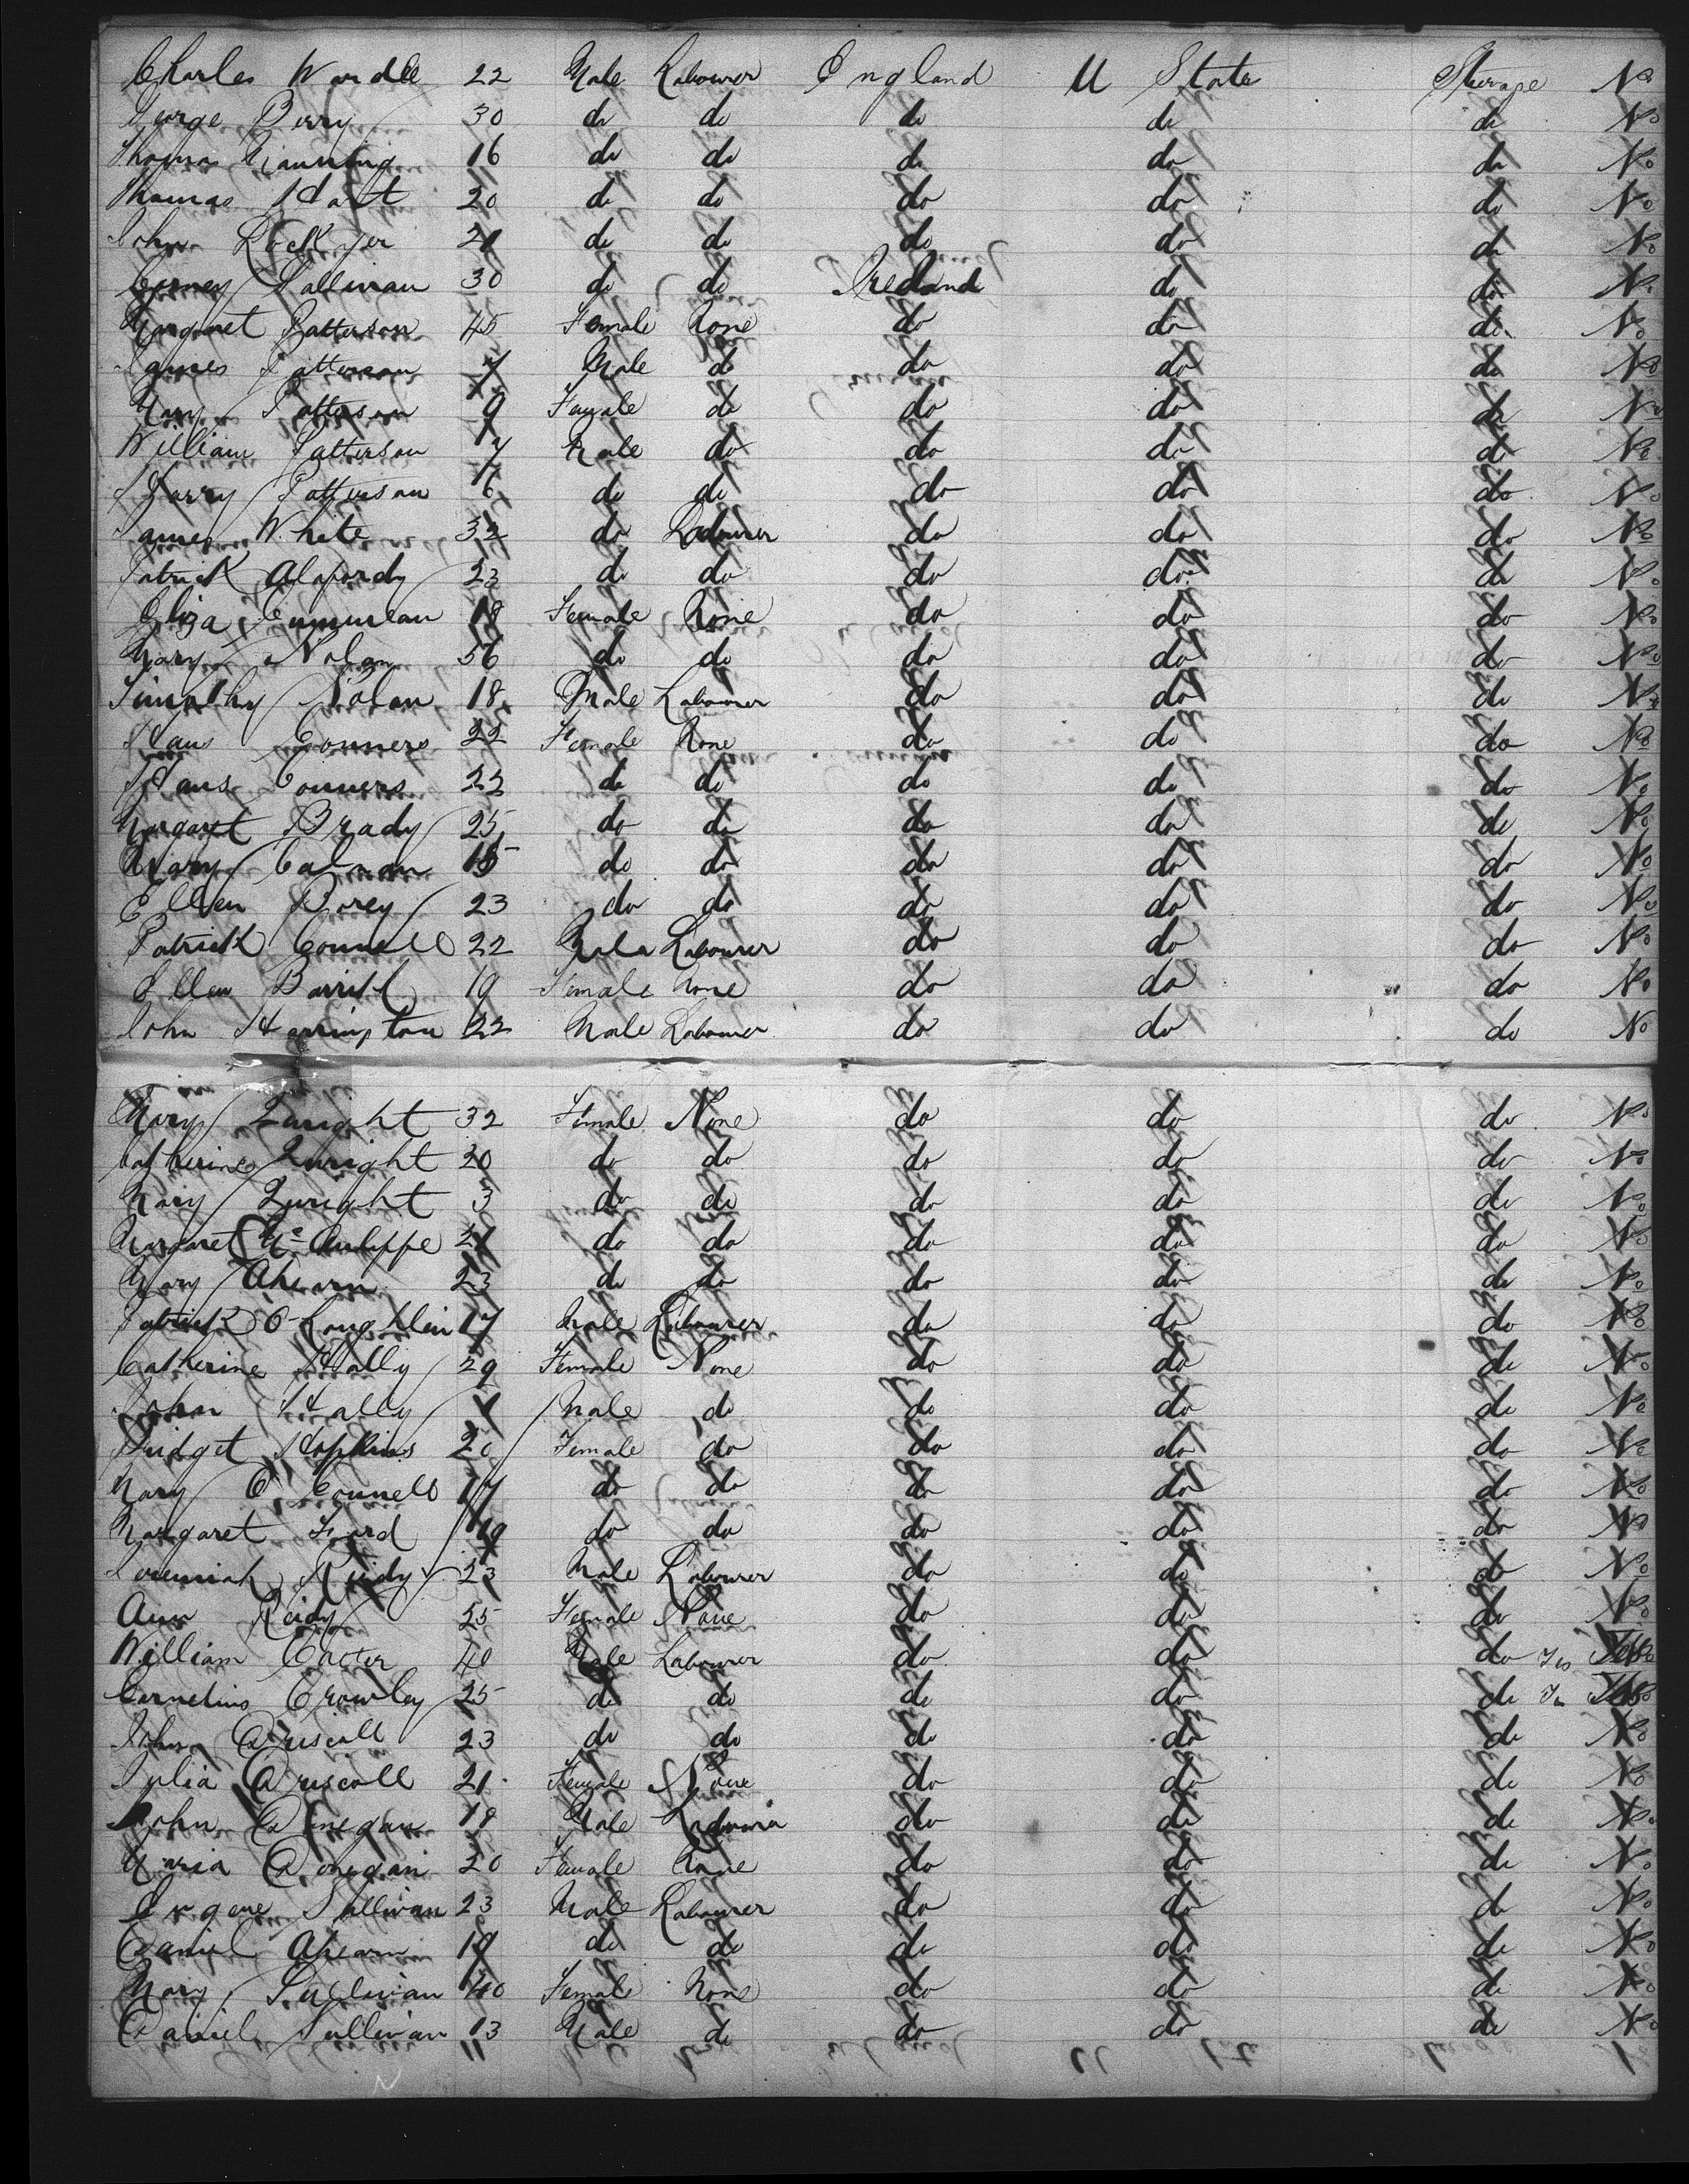 Charles Wardle 22 Male Labourer England U State Sterage No
George Perry 30 do do do do do No
Thomas 16 do do do do do No
Thomas Hatt 20 do do do do do No
John Lockyer 21 do do do do do No
Corney Sullivan 30 do do Ireland do do No
Margaret Patterson 45 Female None do do do No
James Patterson Male do do do do No
Mary Patterson 9 Female do do do do No
William Patterson 7 Male do do do do No
Harry Patterson 6 do do do do do No
James White 32 do Labourer do do do No
Patrick 23 do do do do do No
Eliza 18 Female None do do do No
Mary Nolan 56 do do do do do No
Timothy Nolan 18 Male Labourer do do do No
Conners 22 Female None do do do No
Conners 22 do do do do do No
Margaret Brady 25 do do do do do No
Mary do do do do do No
Ellen 23 do do do do do No
Patrick Connell 22 Male Labourer do do do No
Ellen 19 Female None do do do No
John Harrington 22 Male Labourer do do do No
Mary 32 Female None do do do No
Catherine 20 do do do do do No
Mary 3 do do do do do No
Margaret Mc do do do do do No
Mary Ahearn 23 do do do do do No
Patrick O Loughlin 17 Male Labourer do do do No
Catherine Hally 29 Female None do do do No
John Hally Male do do do do No
Bridget Hopkins 20 Female do do do do No
Mary O Connell 17 do do do do do No
Margaret Ford 19 do do do do do No
Jeremiah Reidy 23 Male Labourer do do do No
Ann Reidy 25 Female None do do do No
William 40 Male Labourer do do do
Cornelius Crowley 25 do do do do do
John Driscoll 23 do do do do do No
Julia Driscoll 21 Female None do do do No
John Donegan 18 Male do do do No
Maria Donegan 20 Female None do do do No
Eugene Sullivan 23 Male Labourer do do do No
Daniel Ahearn 19 do do do do do No
Mary Sullivan 40 Female None do do do No
Daniel Sullivan 13 Male do do do do No
11